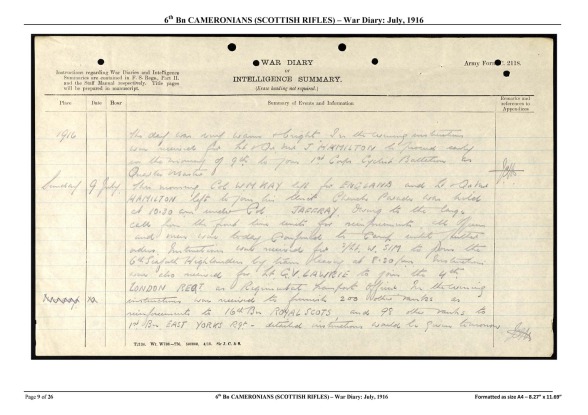 6th Bn CAMERONIANS (SCOTTISH RIFLES) – War Diary: July, 1916
Instructions regarding War Diaries and Intelligence
Summaries are contained in F. S. Regs., Part II.
and the Staff Manual respectively. Title pages
will be prepared in manuscript.
WAR DIARY
or
INTELLIGENCE SUMMARY.
(Erase heading not required.)
Army Form C. 2118.
Place
Date
Hour
Summary of Events and Information
Remarks and
references to
Appendices
1916
The day was and bright. In the evening instructions
were received for Lt & Qr Mr J. HAMILTON to proceed early
in the morning of 9th to join 1st Corps Cyclist Battalion as
Quarter Master
Sunday 9 July
This morning Col WM KAY left for ENGLAND and Lt & Qr Mr
HAMILTON left to join his Unit. Church Parade was held
at 10:30 am under Col JAFFRAY. Owing to the large
calls from the front line units for reinforcements, all officers
and men were today confined to Camp until further
orders. Instructions were received for W. SIM to join the
6th Seaforth Highlanders by train leaving at 8.30 pm. Instruction
was also received for Lt G.V. LAWRIE to join the 4th
LONDON REGT as Regimental Transport Officer. In the evening
instructions was received to furnish 200 other ranks as
reinforcements to 16th Bn ROYAL SCOTS, and 98 other ranks to
1st Bn EAST YORKS Rgt - detailed instructions would be given tomorrow
Page 9 of 26
6th Bn CAMERONIANS (SCOTTISH RIFLES) – War Diary: July, 1916
Formatted as size A4 – 8.27" x 11.69"